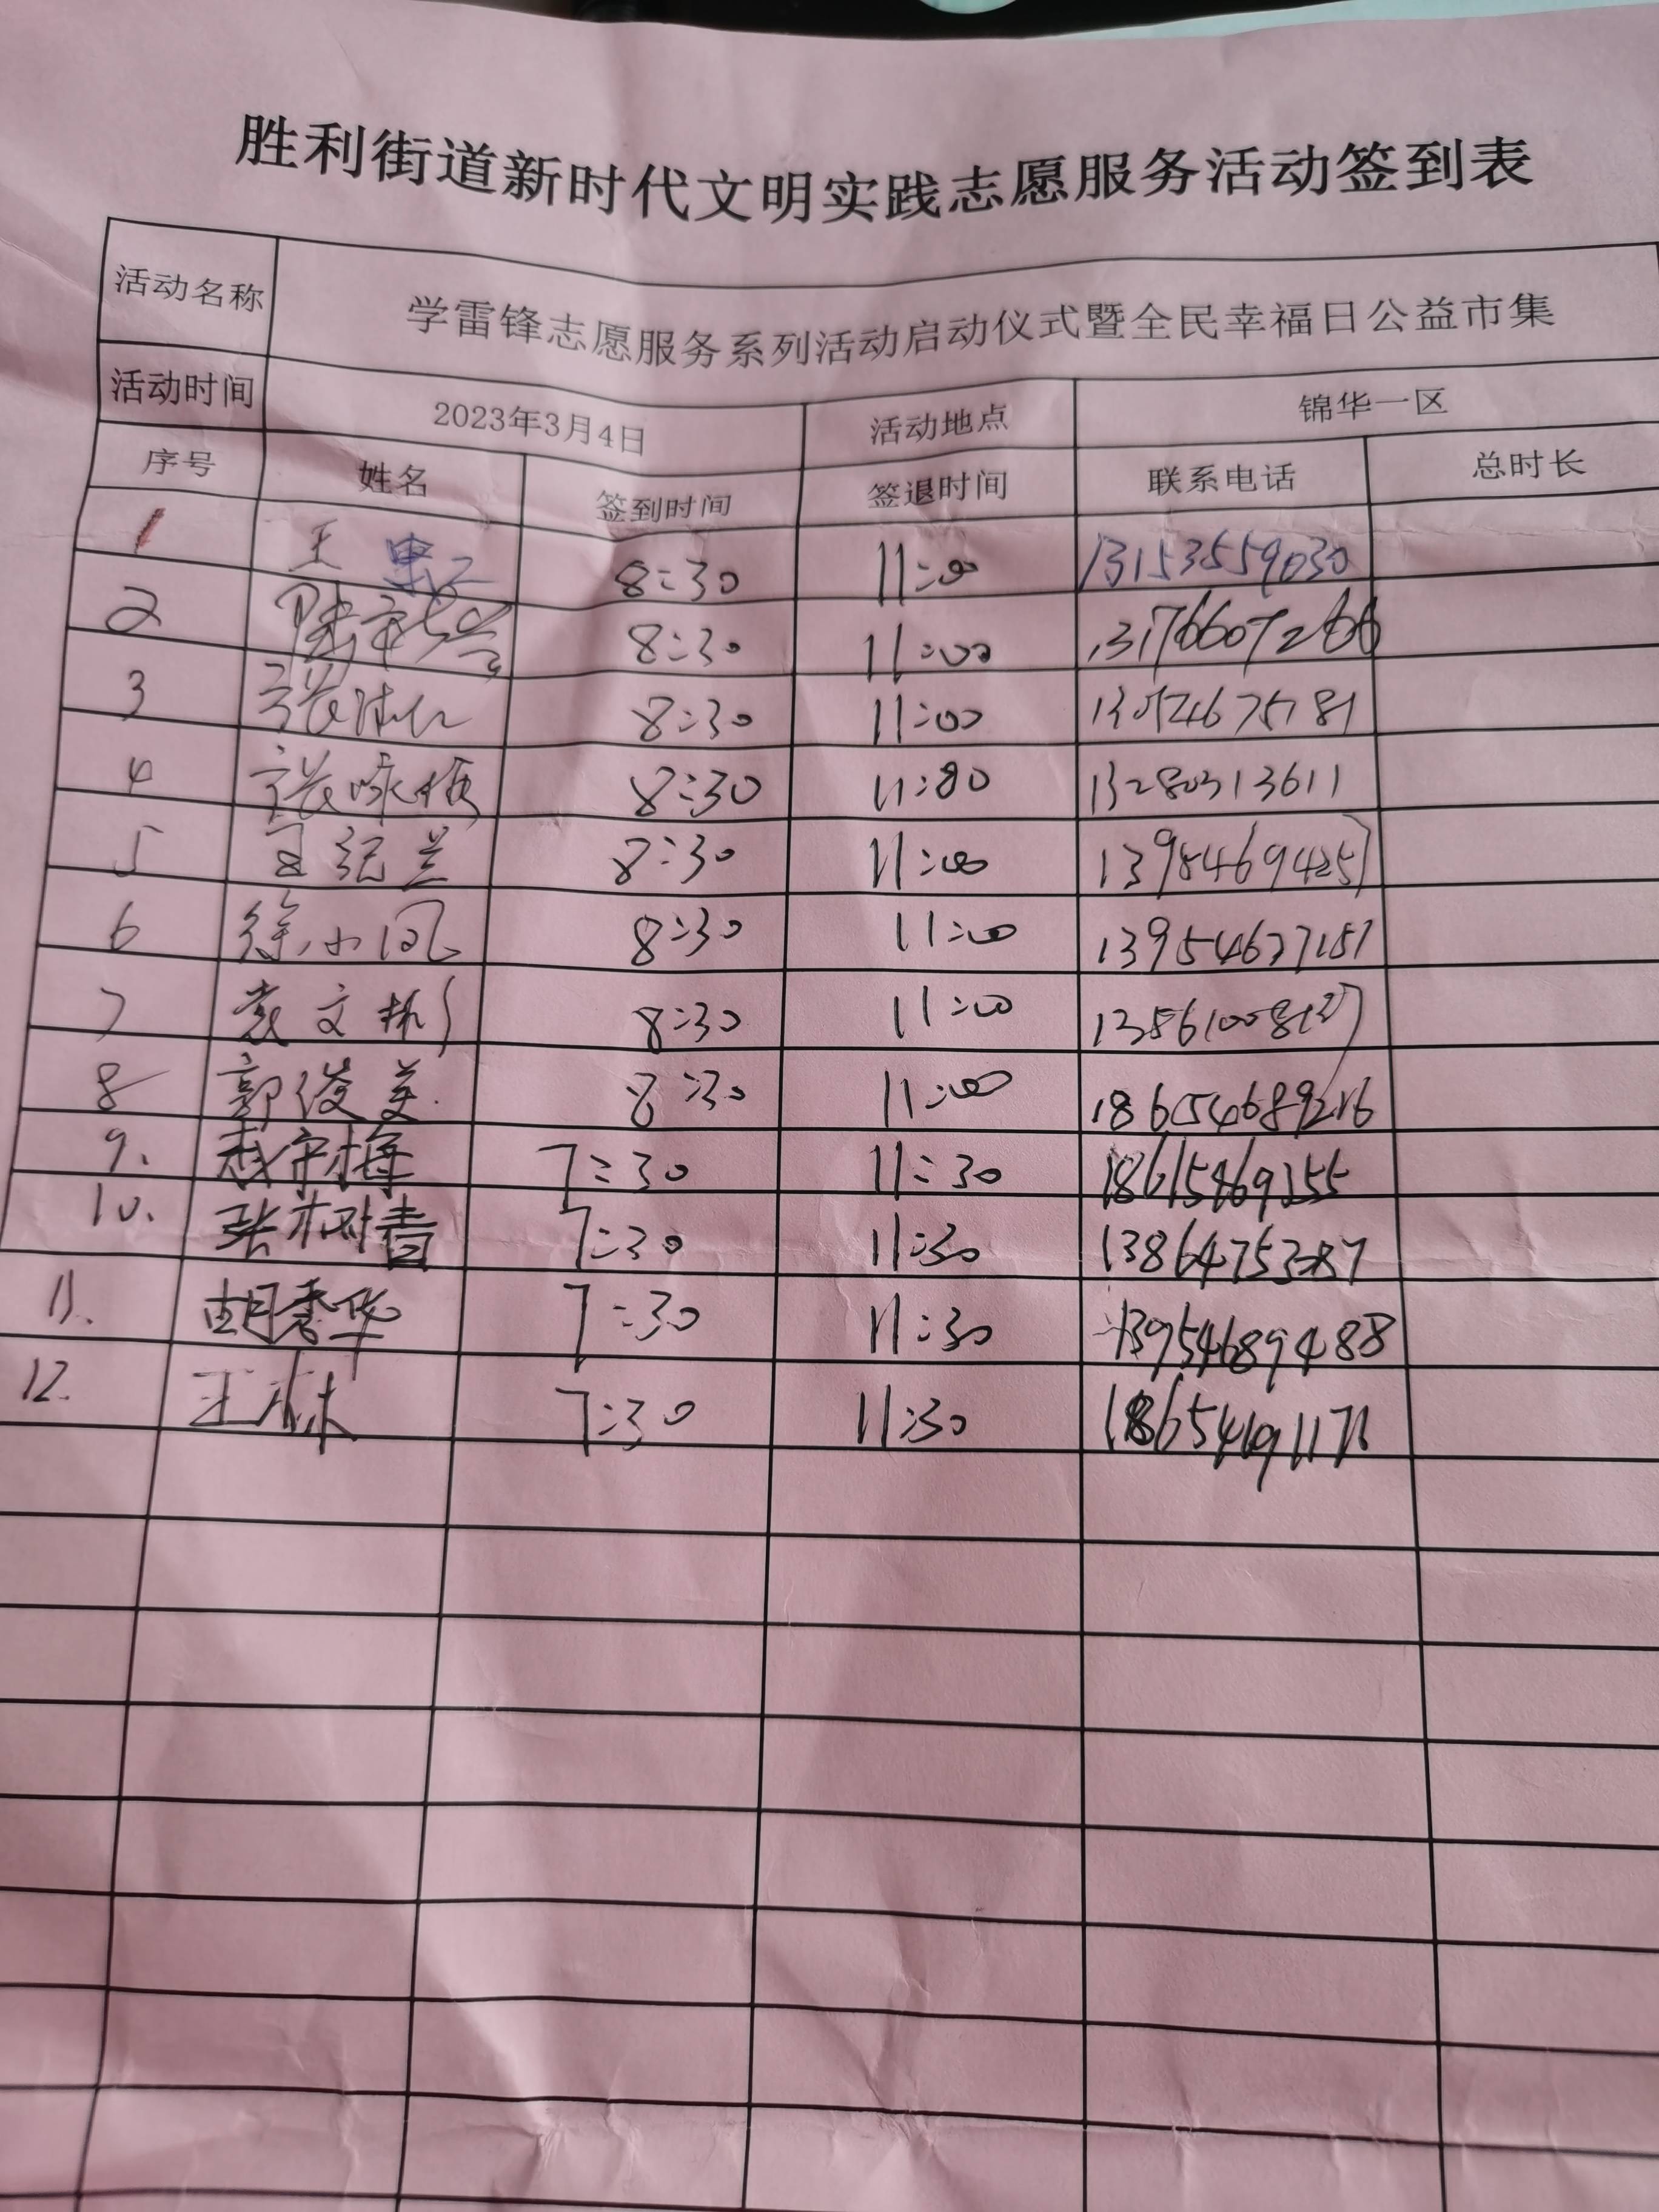 胜利街道新时代文明实践志愿服务活动签到表
活动名称 学雷锋志愿服务系列活动启动仪式暨全民幸福日公益市集
活动时间 2023年3月4日 活动地点 锦华一区
序号 姓名 签到时间 签退时间 联系电话 总时长
1 王 8:30 11:00 13153559030
2 8:30 11:00 13176607266
3 张 8:30 11:00
4 张咏梅 8:30 11:80 13280313611
5 兰 8:30 11:00
6 徐小凤 8:30 11:00
7 袁文彬 8:30 11:00
8 郭俊美 8:30 11:00
9. 7:30 11:30
10. 张树青 7:30 11:30
11. 胡秀华 7:30 11:30 13954689488
12. 王林 7:30 11:30